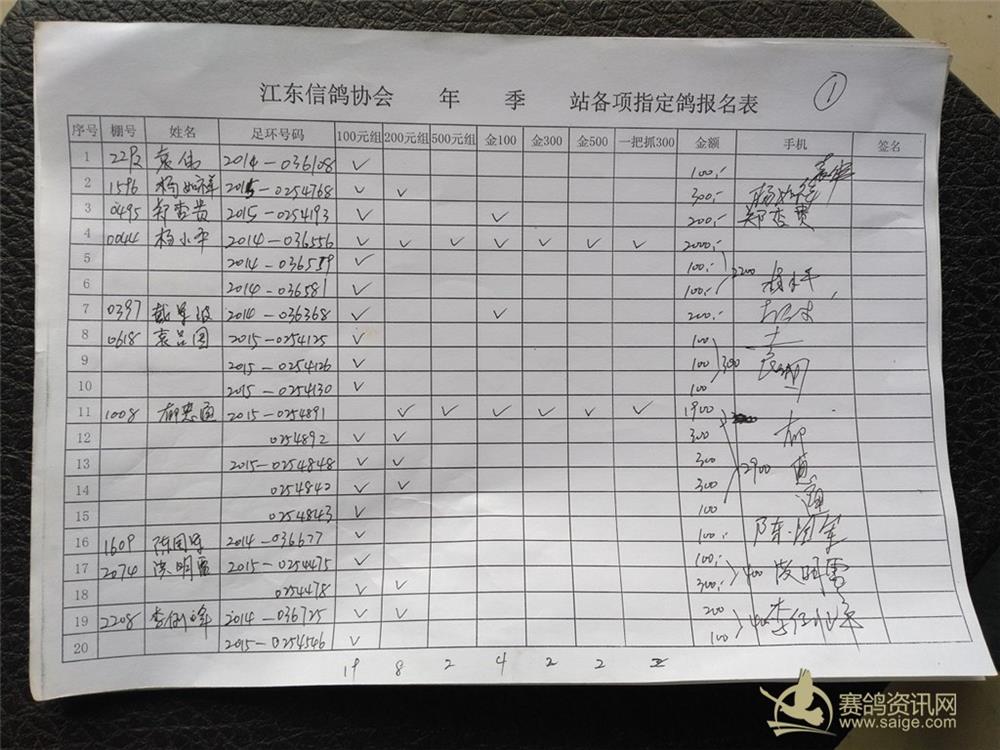 江东信鸽协会 年 季 站各项指定鸽报名表 ①
序号 棚号 姓名 足环号码 100元组 200元组 500元组 金100 金300 金500 一把抓300 金额 手机 签名
1 袁伟 2014-036108 ✓ 100,-
2 1596 杨如祥 2015-0254768 ✓ ✓ 300,- 杨如祥
3 0495 郑杏贵 2015-0254193 ✓ ✓ 200,- 郑杏贵
4 0044 杨小平 2014-036556 ✓ ✓ ✓ ✓ ✓ ✓ ✓ 2000,-
5 2014-036559 ✓ 100,- 2200
6 2014-036581 ✓ 100,- 杨小平
7 0397 2014-036368 ✓ ✓ 200,-
8 0618 袁吕国 2015-0254125 ✓ 100
9 2015-0254126 ✓ 100 300
10 2015-0254130 ✓ 100
11 1008 2015-0254891 ✓ ✓ ✓ ✓ ✓ ✓ 1900
12 0254892 ✓ ✓ 300
13 2015-0254848 ✓ ✓ 300 2900
14 0254842 ✓ ✓ 300
15 0254843 ✓ 100
16 1609 陈国军 2014-036677 ✓ 100,- 陈国军
17 2074 洪明雷 2015-0254475 ✓ 100,- 400
18 0254478 ✓ ✓ 300,-
19 2208 2014-036725 ✓ ✓ 200
20 2015-0254546 ✓ 100
19 8 2 4 2 2
赛鸽资讯网
www.saige.com